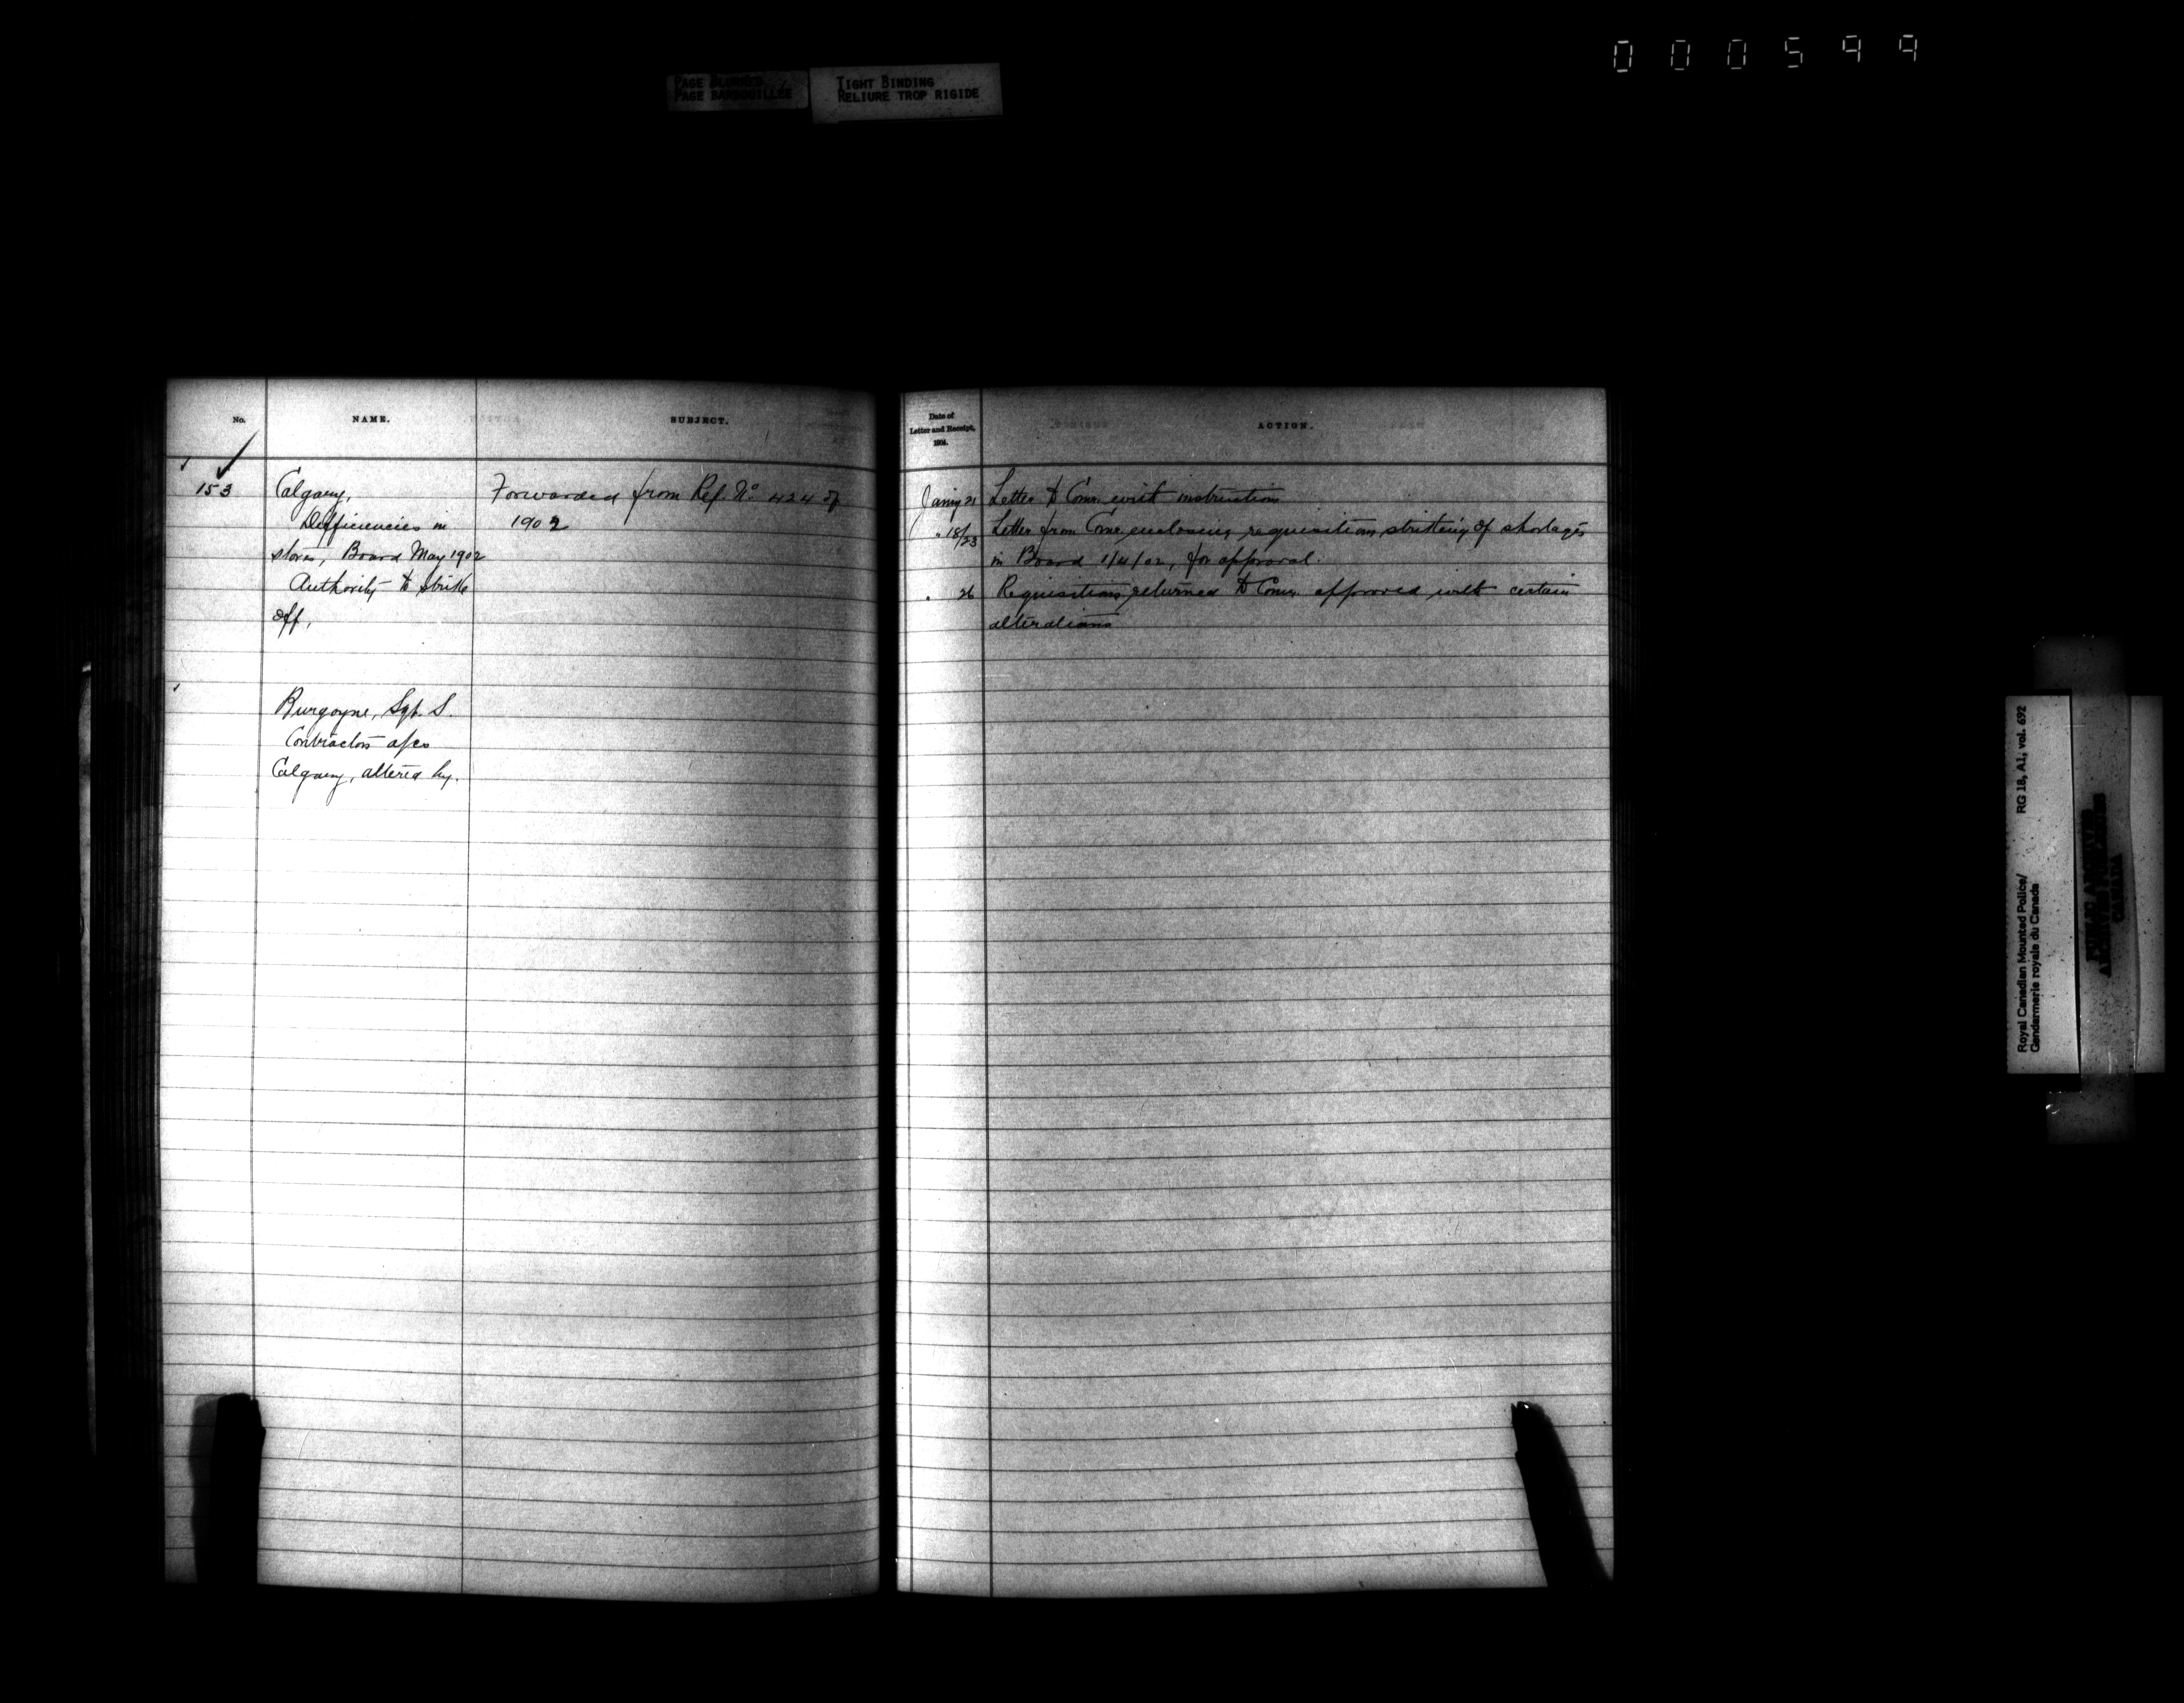 000599
PAGE BLURRED
PAGE BARBOUILLEE
TIGHT BINDING
RELIURE TROP RIGIDE
No.
NAME.
SUBJECT.
153
Calgary,
Defficiencies in
stores, Board May 1902
Authority to strike
off.
Forwarded from Ref. No 424 of
1902
Burgoyne, Sgt. S.
Contractors a/cs
Calgary, altered by.
Date of
Letter and Receipt,
1904.
ACTION.
Janry 21 Letter to Comr. with instructions
" 18/23 Letter from Comr. enclosing requisitions striking off shortages
in Board 1/4/02, for approval.
" 26 Requisitions returned to Comr. approved with certain
alterations
Royal Canadian Mounted Police/
Gendarmerie royale du Canada
RG 18, A1, vol. 692
PUBLIC ARCHIVES
ARCHIVES PUBLIQUES
CANADA